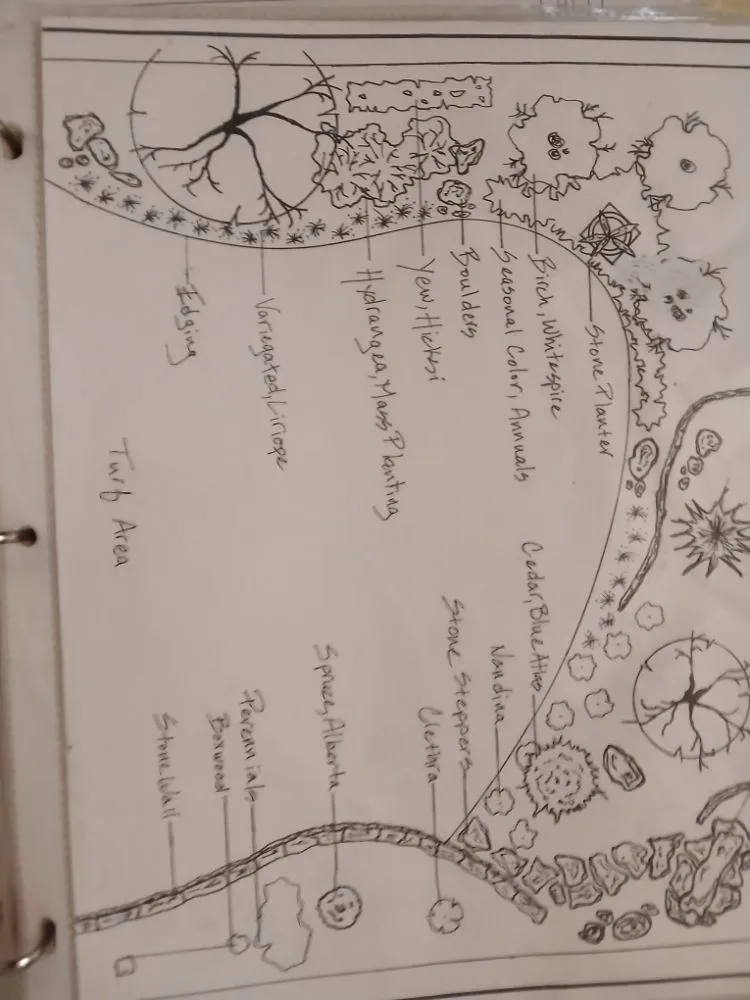 Stone Planter
Birch, Whitespire
Seasonal Color, Annuals
Boulders
Yew, Hicksi
Hydrangea, Mass Planting
Variegated, Liriope
Edging
Turf Area
Cedar, Blue Atlas
Nandina
Stone Steppers
Clethra
Spruce, Alberta
Perennials
Boxwood
Stone Wall